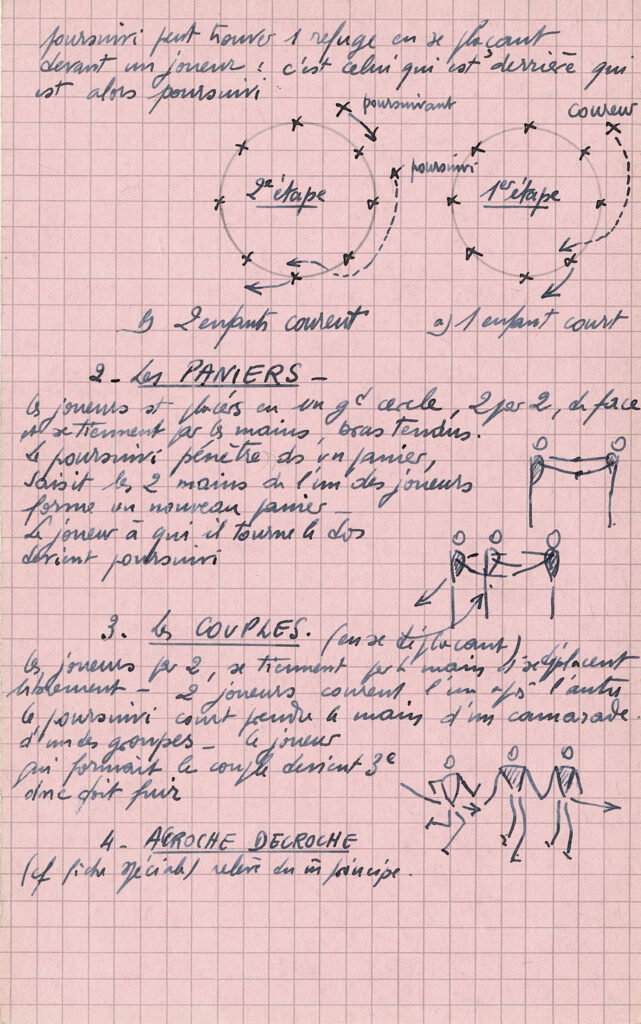 poursuivi peut trouver 1 refuge en se plaçant
devant un joueur : c'est celui qui est derrière qui
est alors poursuivi
poursuivant
coureur
poursuivi
2e étape
1er étape
b) 2 enfants courent
a) 1 enfant court
2 - Les PANIERS -
Les joueurs st placés en un gd cercle, 2 par 2, de face
et se tiennent par les mains, bras tendus.
Le poursuivi pénètre ds un panier,
saisit les 2 mains de l'un des joueurs
forme un nouveau panier -
Le joueur à qui il tourne le dos
devient poursuivi
3. Les COUPLES. (en se déplaçant)
Les joueurs par 2, se tiennent par la main et se déplacent
librement - 2 joueurs courent l'un aps l'autre
le poursuivi court prendre la main d'un camarade
d'un des groupes - le joueur
qui formait le couple devient 3e
donc doit fuir
4. ACROCHE DECROCHE
(cf fiche spéciale) relève du m principe.